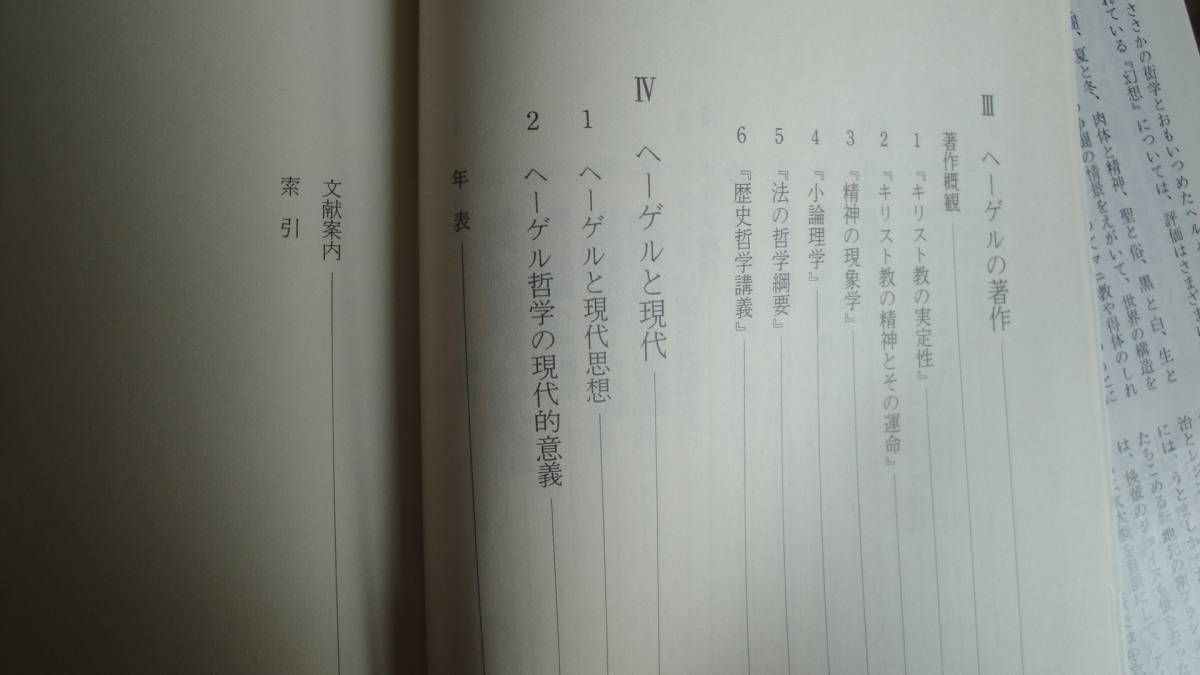 Ⅲ ヘーゲルの著作
著作概観
1 『キリスト教の実定性』
2 『キリスト教の精神とその運命』
3 『精神の現象学』
4 『小論理学』
5 『法の哲学綱要』
6 『歴史哲学講義』
Ⅳ ヘーゲルと現代
1 ヘーゲルと現代思想
2 ヘーゲル哲学の現代的意義
年表
文献案内
索引
ささかの衒学とおもいつめたヘル
れている『幻想』については、評価はさまざま
夏と冬、肉体と精神、聖と俗、黒と白、生と
の情景をえがいて、世界の構造を